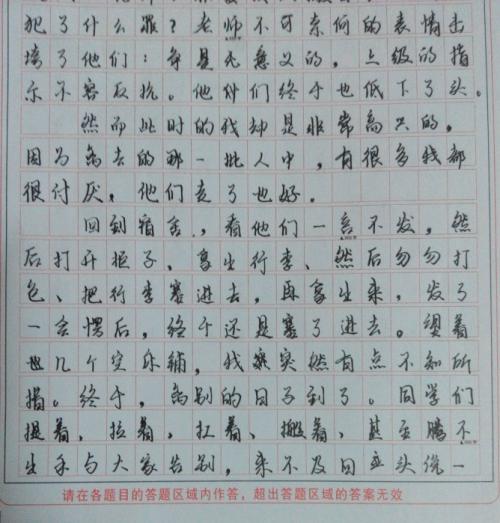 犯了什么罪？老师不可奈何的表情击
垮了他们：争是无意义的，上级的指
示不容反抗。他们终于也低下了头。
然而此时的我却是非常高兴的，
因为离去的那一批人中，有很多我都
很讨厌，他们走了也好。
回到宿舍，看他们一言不发，然
后打开柜子，拿出行李、然后匆匆打
包、把行李塞进去，再拿出来，发了
一会愣后，终于还是塞了进去。望着
几个空床铺，我突然有点不知所
措。终于，离别的日子到了。同学们
提着，拉着，扛着、搬着，甚至腾不
出手与大家告别，来不及回头说一
请在各题目的答题区域内作答，超出答题区域的答案无效